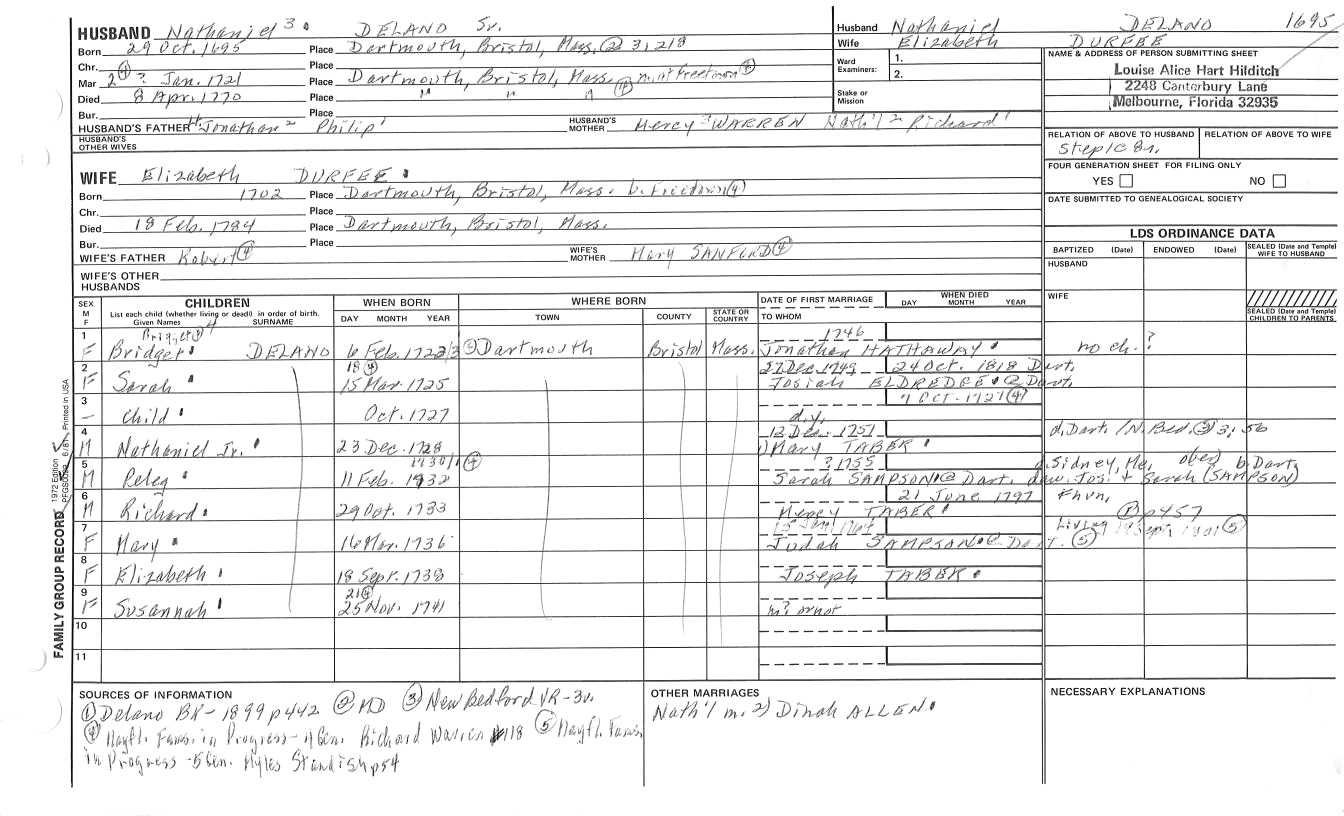 HUSBAND Nathaniel 3 DELANO Sr.
Born 29 Oct. 1695 Place Dartmouth, Bristol, Mass. ② 3, 218
Chr. Place
Mar 2④? Jan. 1721 Place Dartmouth, Bristol, Mass. ④
Died 8 Apr. 1770 Place " " "
Bur. Place
HUSBAND'S FATHER Jonathan 2 Philip 1 HUSBAND'S MOTHER Mercy 3 WARREN Nath'l 2 Richard 1
HUSBAND'S OTHER WIVES
WIFE Elizabeth DURFEE
Born 1702 Place Dartmouth, Bristol, Mass.
Chr. Place
Died 18 Feb. 1784 Place Dartmouth, Bristol, Mass.
Bur. Place
WIFE'S FATHER Robert ④ WIFE'S MOTHER Mary SANFORD ④
WIFE'S OTHER HUSBANDS
Husband Nathaniel DELANO 1695
Wife Elizabeth DURFEE
Ward Examiners: 1. 2.
Stake or Mission
NAME & ADDRESS OF PERSON SUBMITTING SHEET
Louise Alice Hart Hilditch
2248 Canterbury Lane
Melbourne, Florida 32935
RELATION OF ABOVE TO HUSBAND RELATION OF ABOVE TO WIFE
FOUR GENERATION SHEET FOR FILING ONLY
YES NO
DATE SUBMITTED TO GENEALOGICAL SOCIETY
LDS ORDINANCE DATA
BAPTIZED (Date) ENDOWED (Date) SEALED (Date and Temple) WIFE TO HUSBAND
HUSBAND
WIFE
SEALED (Date and Temple) CHILDREN TO PARENTS
SEX M F CHILDREN WHEN BORN WHERE BORN DATE OF FIRST MARRIAGE WHEN DIED
List each child (whether living or dead) in order of birth. DAY MONTH YEAR TOWN COUNTY STATE OR COUNTRY TO WHOM DAY MONTH YEAR
Given Names SURNAME
1 1746
F Bridget DELANO 6 Feb. 1722/3 Dartmouth Bristol Mass. Jonathan HATHAWAY no ch. ?
2 18④ 27 Dec. 1749 24 Oct. 1818 Dart.
F Sarah 15 Mar. 1725 Josiah ELDREDGE @ Dart.
3 7 Oct. 1727 ④
— Child Oct. 1727 d.y.
4 12 Dec. 1751 d. Dart. /N. Bed. ③ 3:56
M Nathaniel Jr. 23 Dec. 1728 1) Mary TABER
5 1730/1 ④ ? 1755 d. Sidney, Me. b. Dart.
M Peleg 11 Feb. 1732 Sarah SAMPSON @ Dart. daw. Jos. + Sarah (SAMPSON)
6 21 June 1797 Fhvn.
M Richard 29 Oct. 1733 Mercy TABER p457
7
F Mary 16 Mar. 1736 Judah SAMPSON @ Dart. ⑤
8
F Elizabeth 18 Sept. 1738 Joseph TABER
9 21④
F Susannah 25 Nov. 1741 m? or not
10
11
1972 Edition PFGS0029 6/81 Printed in USA
FAMILY GROUP RECORD
SOURCES OF INFORMATION
① Delano BK- 1899 p442 ② MD ③ New Bedford VR-3v.
④ Mayfl. Fams. in Progress- 4Gen. Richard Warren p118 ⑤ Mayfl. Fams.
in Progress -5Gen. Myles Standish p54
OTHER MARRIAGES
Nath'l m. 2) Dinah ALLEN
NECESSARY EXPLANATIONS